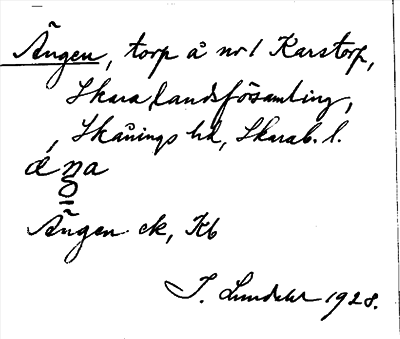 Ängen, torp å nr 1 Karstorp,
Skara landsförsamling,
Skånings hd, Skarab. l.
Ängen ek, Kb
1928.